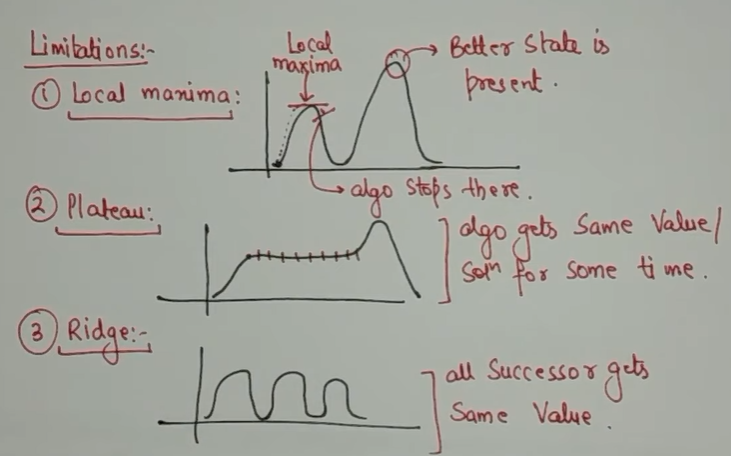 Limitations:-
① Local maxima:
Local
maxima
Better State is
present.
algo stops there.
② Plateau:
algo gets Same Value/
Soln for some time.
③ Ridge:-
all Successor gets
Same Value.